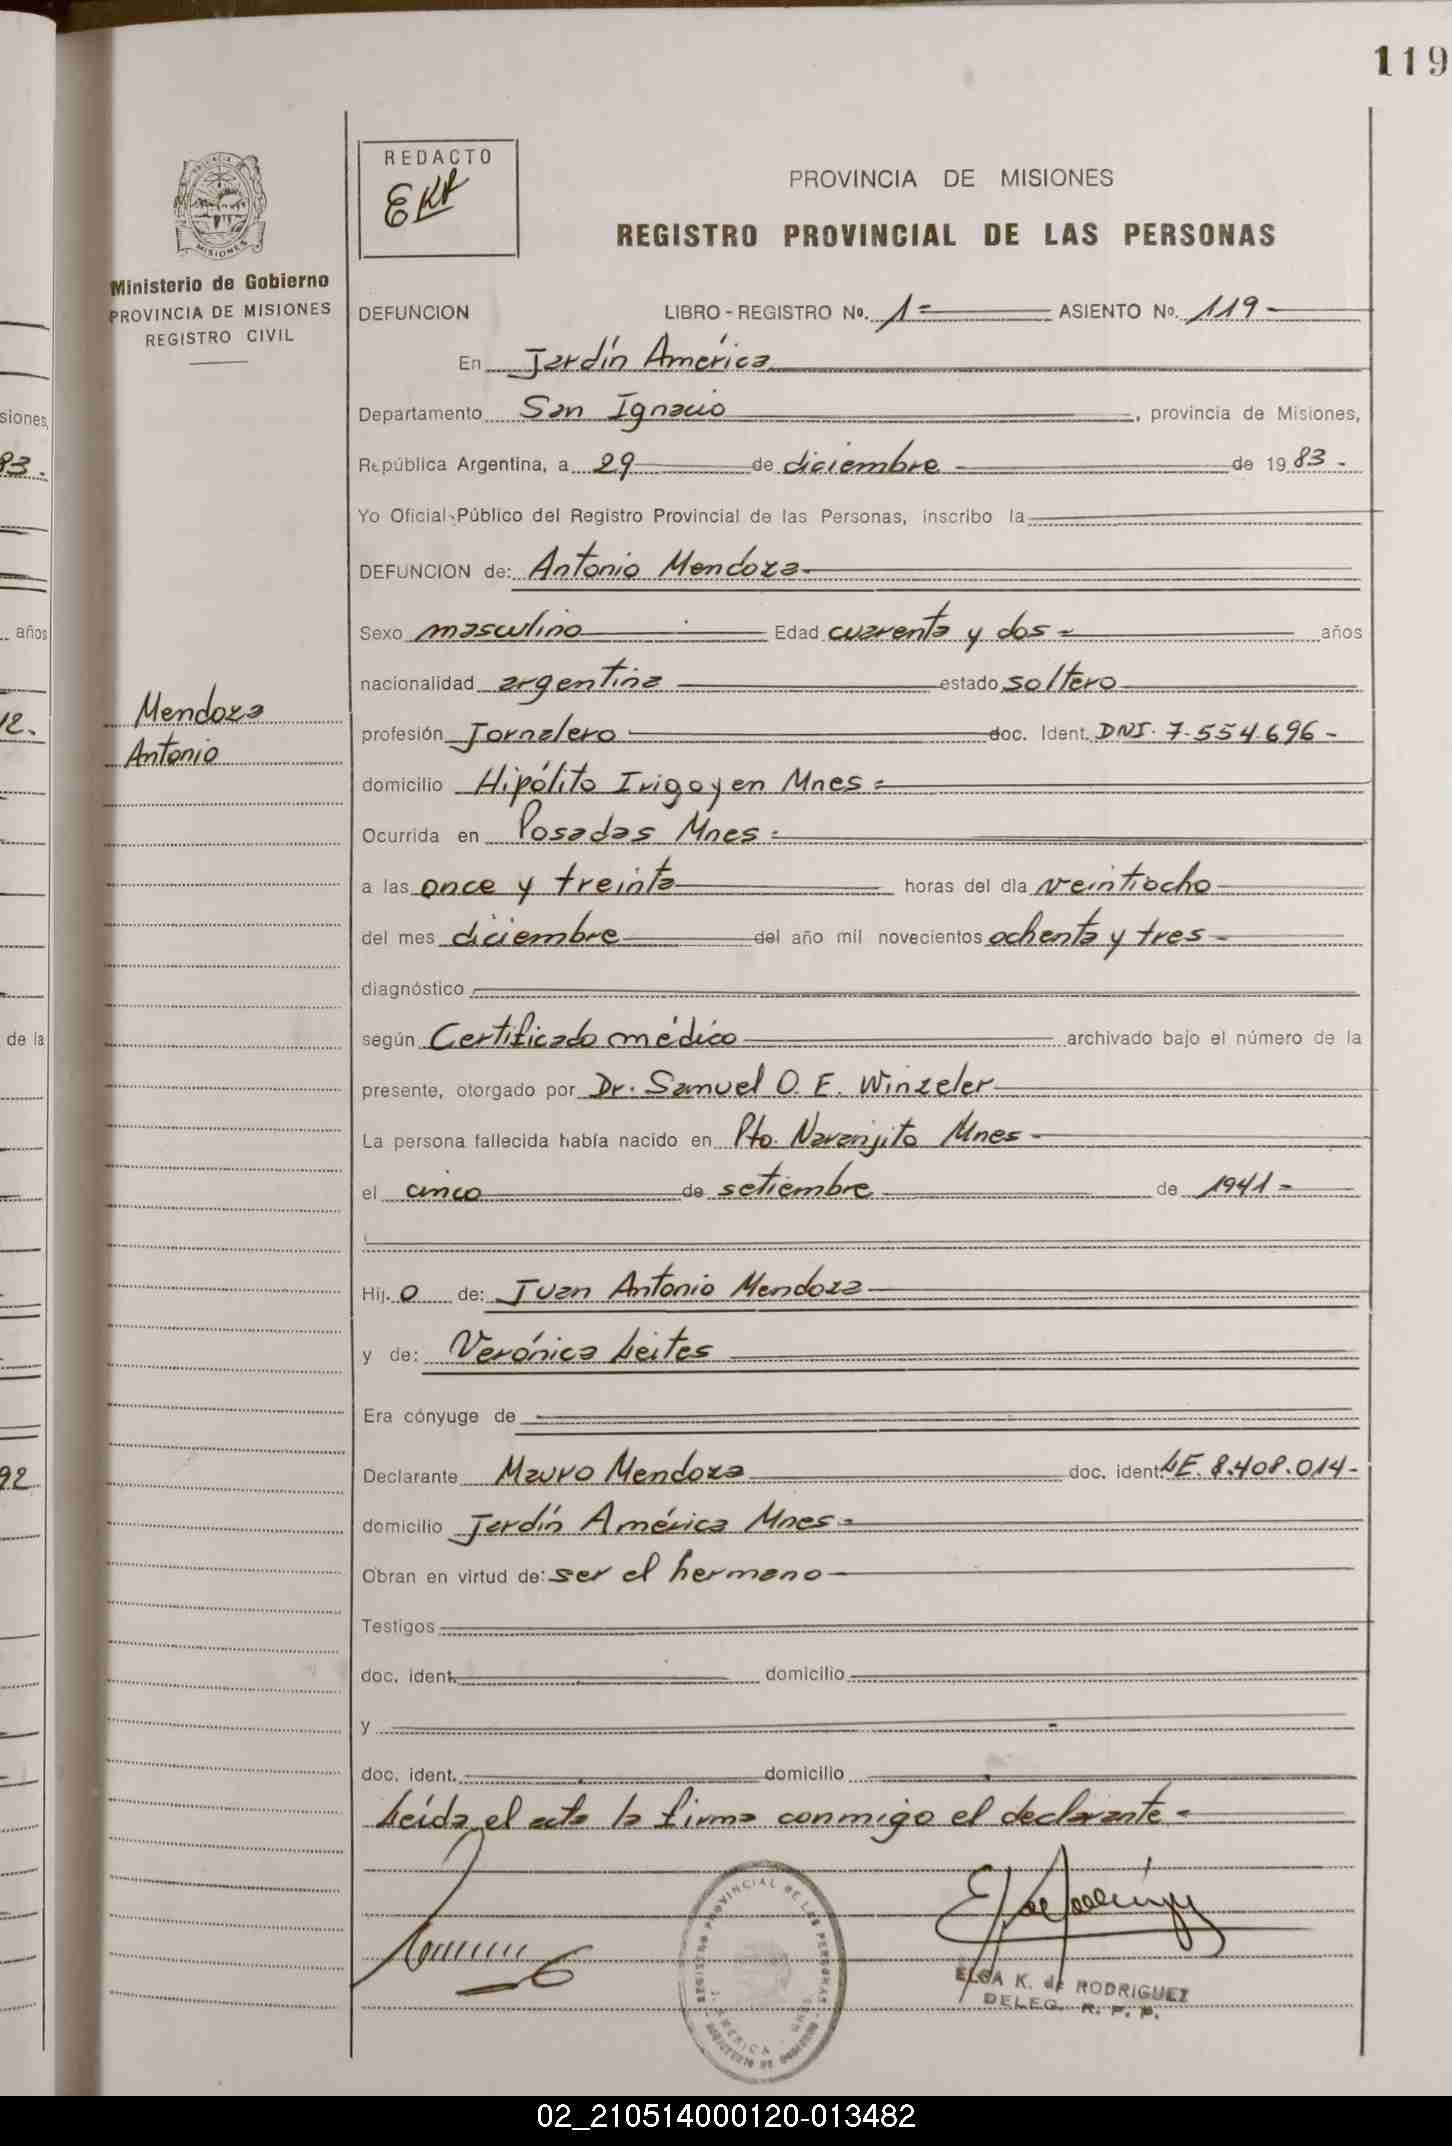 119
REDACTO
EKR
PROVINCIA DE MISIONES
REGISTRO PROVINCIAL DE LAS PERSONAS
MISIONES
Ministerio de Gobierno
PROVINCIA DE MISIONES
REGISTRO CIVIL
DEFUNCION LIBRO - REGISTRO No. 1= ASIENTO No. 119-
En Jardín América
Departamento San Ignacio, provincia de Misiones,
República Argentina, a 29 de diciembre de 1983.-
Yo Oficial Público del Registro Provincial de las Personas, inscribo la
DEFUNCION de: Antonio Mendoza-
Sexo masculino Edad cuarenta y dos= años
nacionalidad argentina estado soltero
Mendoza
Antonio
profesión Jornalero doc. Ident. DNI. 7.554.696-
domicilio Hipólito Irigoyen Mnes=
Ocurrida en Posadas Mnes=
a las once y treinta horas del día veintiocho
del mes diciembre del año mil novecientos ochenta y tres-
diagnóstico
según Certificado médico archivado bajo el número de la
presente, otorgado por Dr. Samuel O. E. Winzeler
La persona fallecida había nacido en Pto. Naranjito Mnes-
el cinco de setiembre de 1941=
Hij.o de: Juan Antonio Mendoza
y de: Verónica Leites
Era cónyuge de
Declarante Mauro Mendoza doc. ident. LE. 8.408.014-
domicilio Jardín América Mnes=
Obran en virtud de: ser el hermano
Testigos
doc. ident. domicilio
y
doc. ident. domicilio
Leída el acta la firma conmigo el declarante=
REGISTRO PROVINCIAL DE LAS PERSONAS
ELSA K. de RODRIGUEZ
DELEG. R. P. P.
siones,
83.-
años
12.-
de la
92
02_210514000120-013482